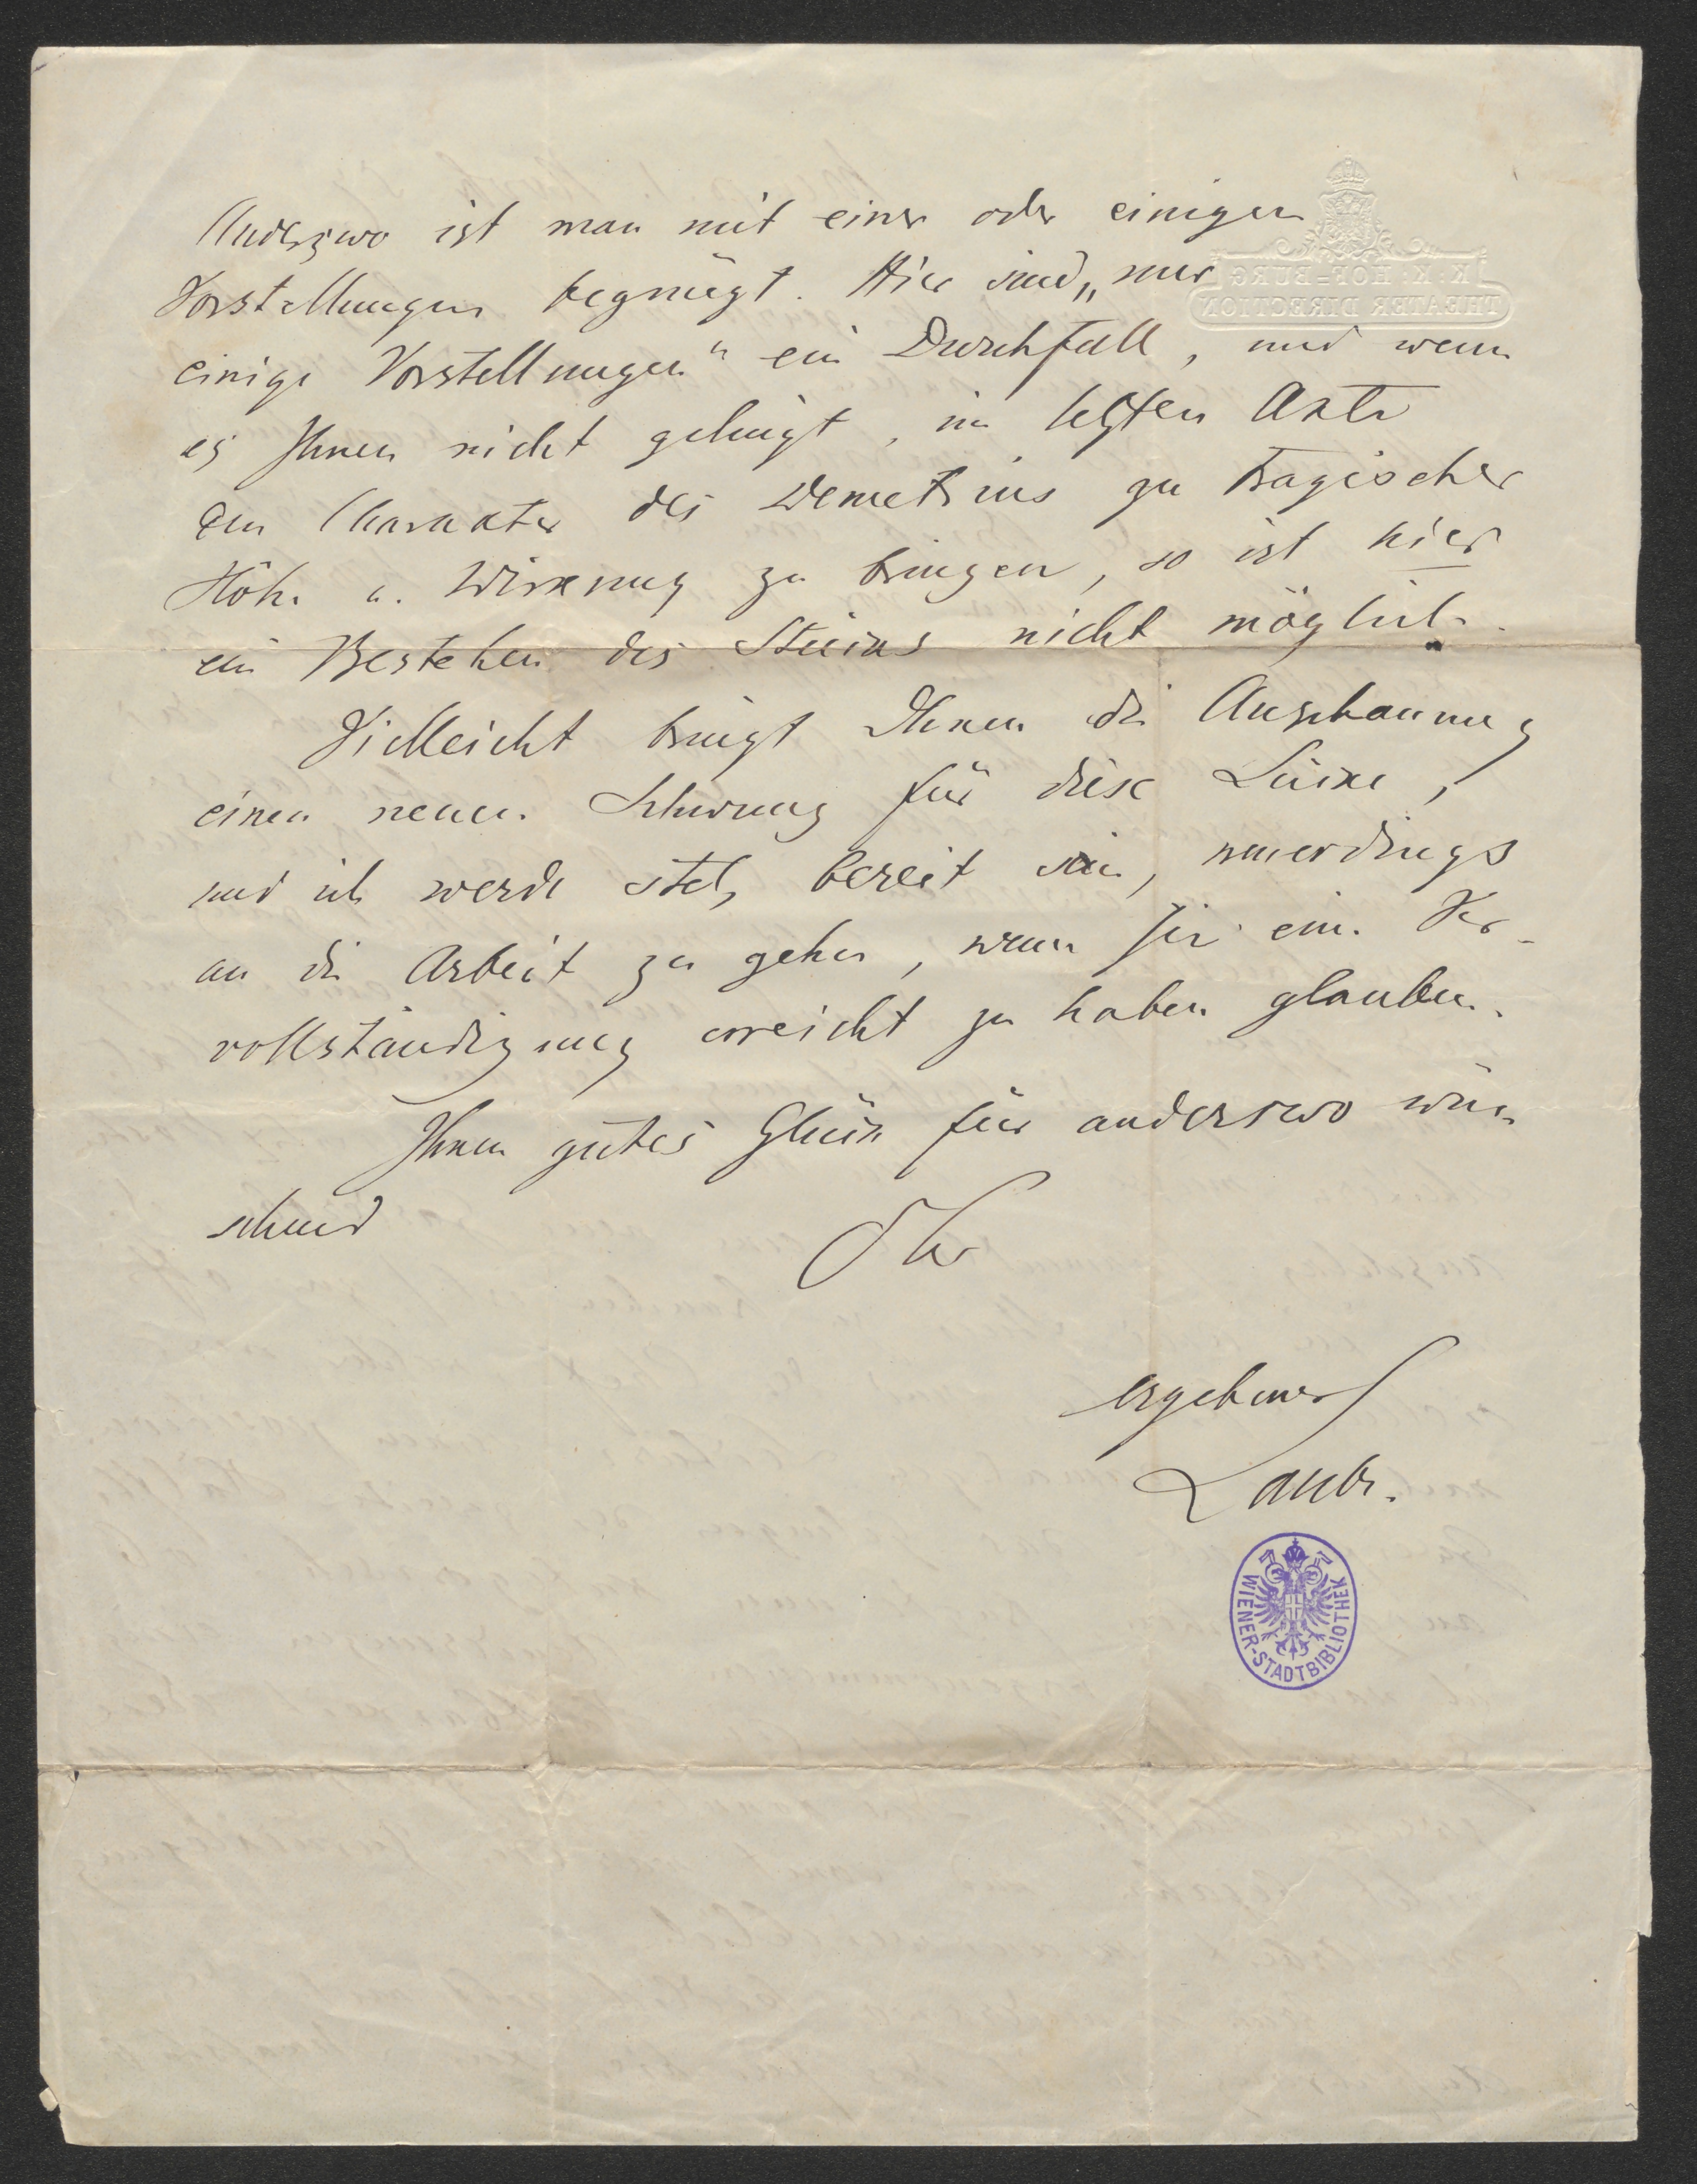 K: K: HOF-BURG
THEATER DIRECTION
Anderswo ist man mit einer oder einigen
Vorstellungen begnügt. Hier sind „nur
einige Vorstellungen" ein Durchfall, und wenn
es Ihnen nicht gelingt, im letzten Akte
den Charakter des Demetrius zu tragischer
Höhe u. Wirkung zu bringen, so ist hier
ein Bestehen des Stücks nicht möglich.
Vielleicht bringt Ihnen die Anschauung
einen neuen Schwung für diese Lücke,
und ich werde stets bereit sein, neuerdings
an die Arbeit zu gehen, wenn Sie eine Ver-
vollständigung erreicht zu haben glauben.
Ihnen gutes Glück für anderswo wün
schend
Ihr
ergebener
Laube.
WIENER-STADTBIBLIOTHEK